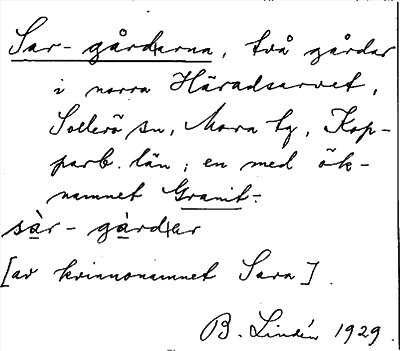 Sar-gårdarna, två gårdar
i norra Häradsarvet,
Sollerö sn, Mora tg, Kop-
parb. län; en med ök-
namnet Granit-:
sàr-gàrdər
[av kvinnonamnet Sara].
B. Lindén 1929.